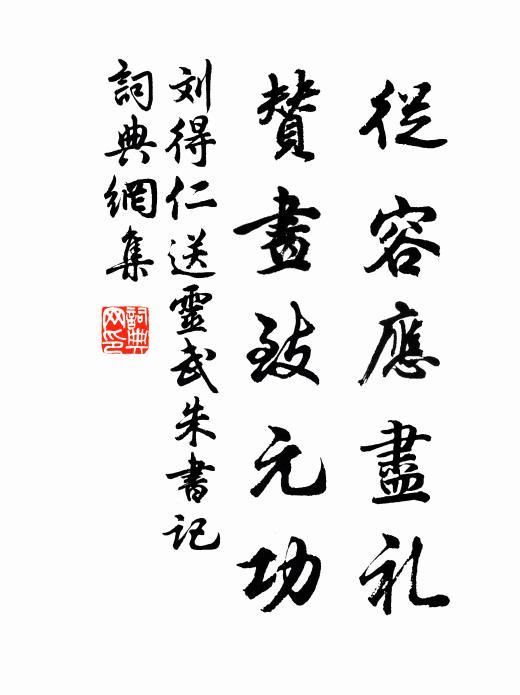 從容應盡礼
賛畫致元功
刘得仁送靈武朱書記
詞典網集
詞典网印